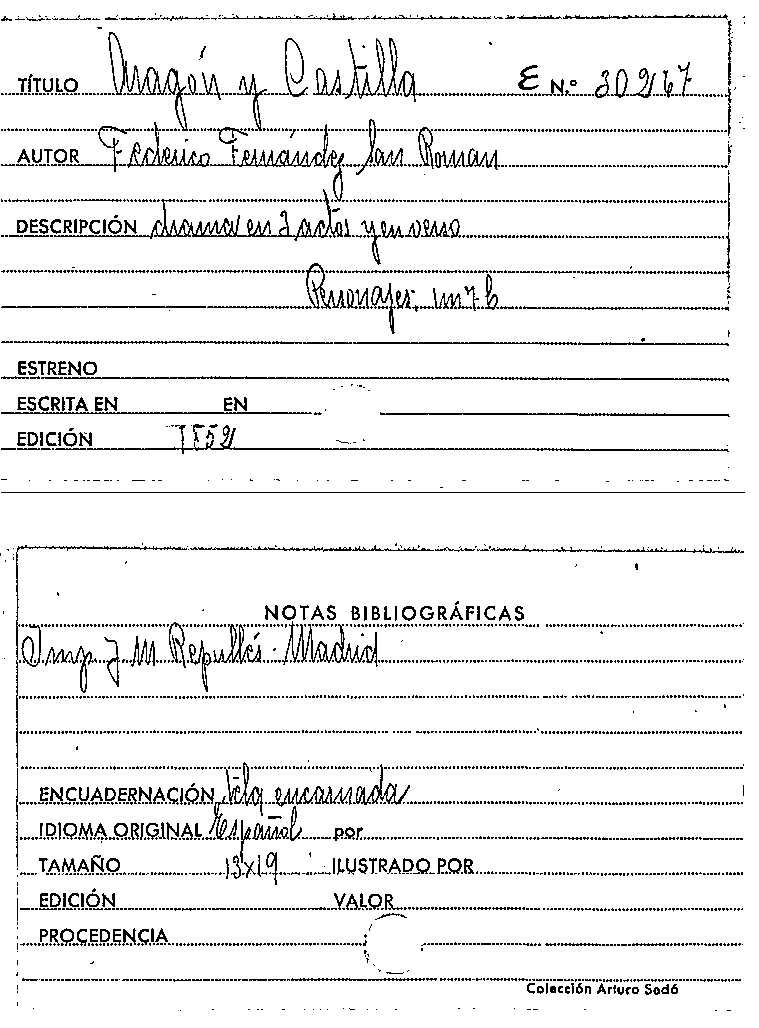 TÍTULO Aragón y Castilla Ɛ N.º 30267
AUTOR Federico Fernández San Roman
DESCRIPCIÓN drama en 3 actos y en verso
Personajes,
ESTRENO
ESCRITA EN EN
EDICIÓN 1852
NOTAS BIBLIOGRÁFICAS
Imp. J M Repullés - Madrid
ENCUADERNACIÓN tela encarnada
IDIOMA ORIGINAL Español por
TAMAÑO 13x19 ILUSTRADO POR
EDICIÓN VALOR
PROCEDENCIA
Colección Arturo Sedó